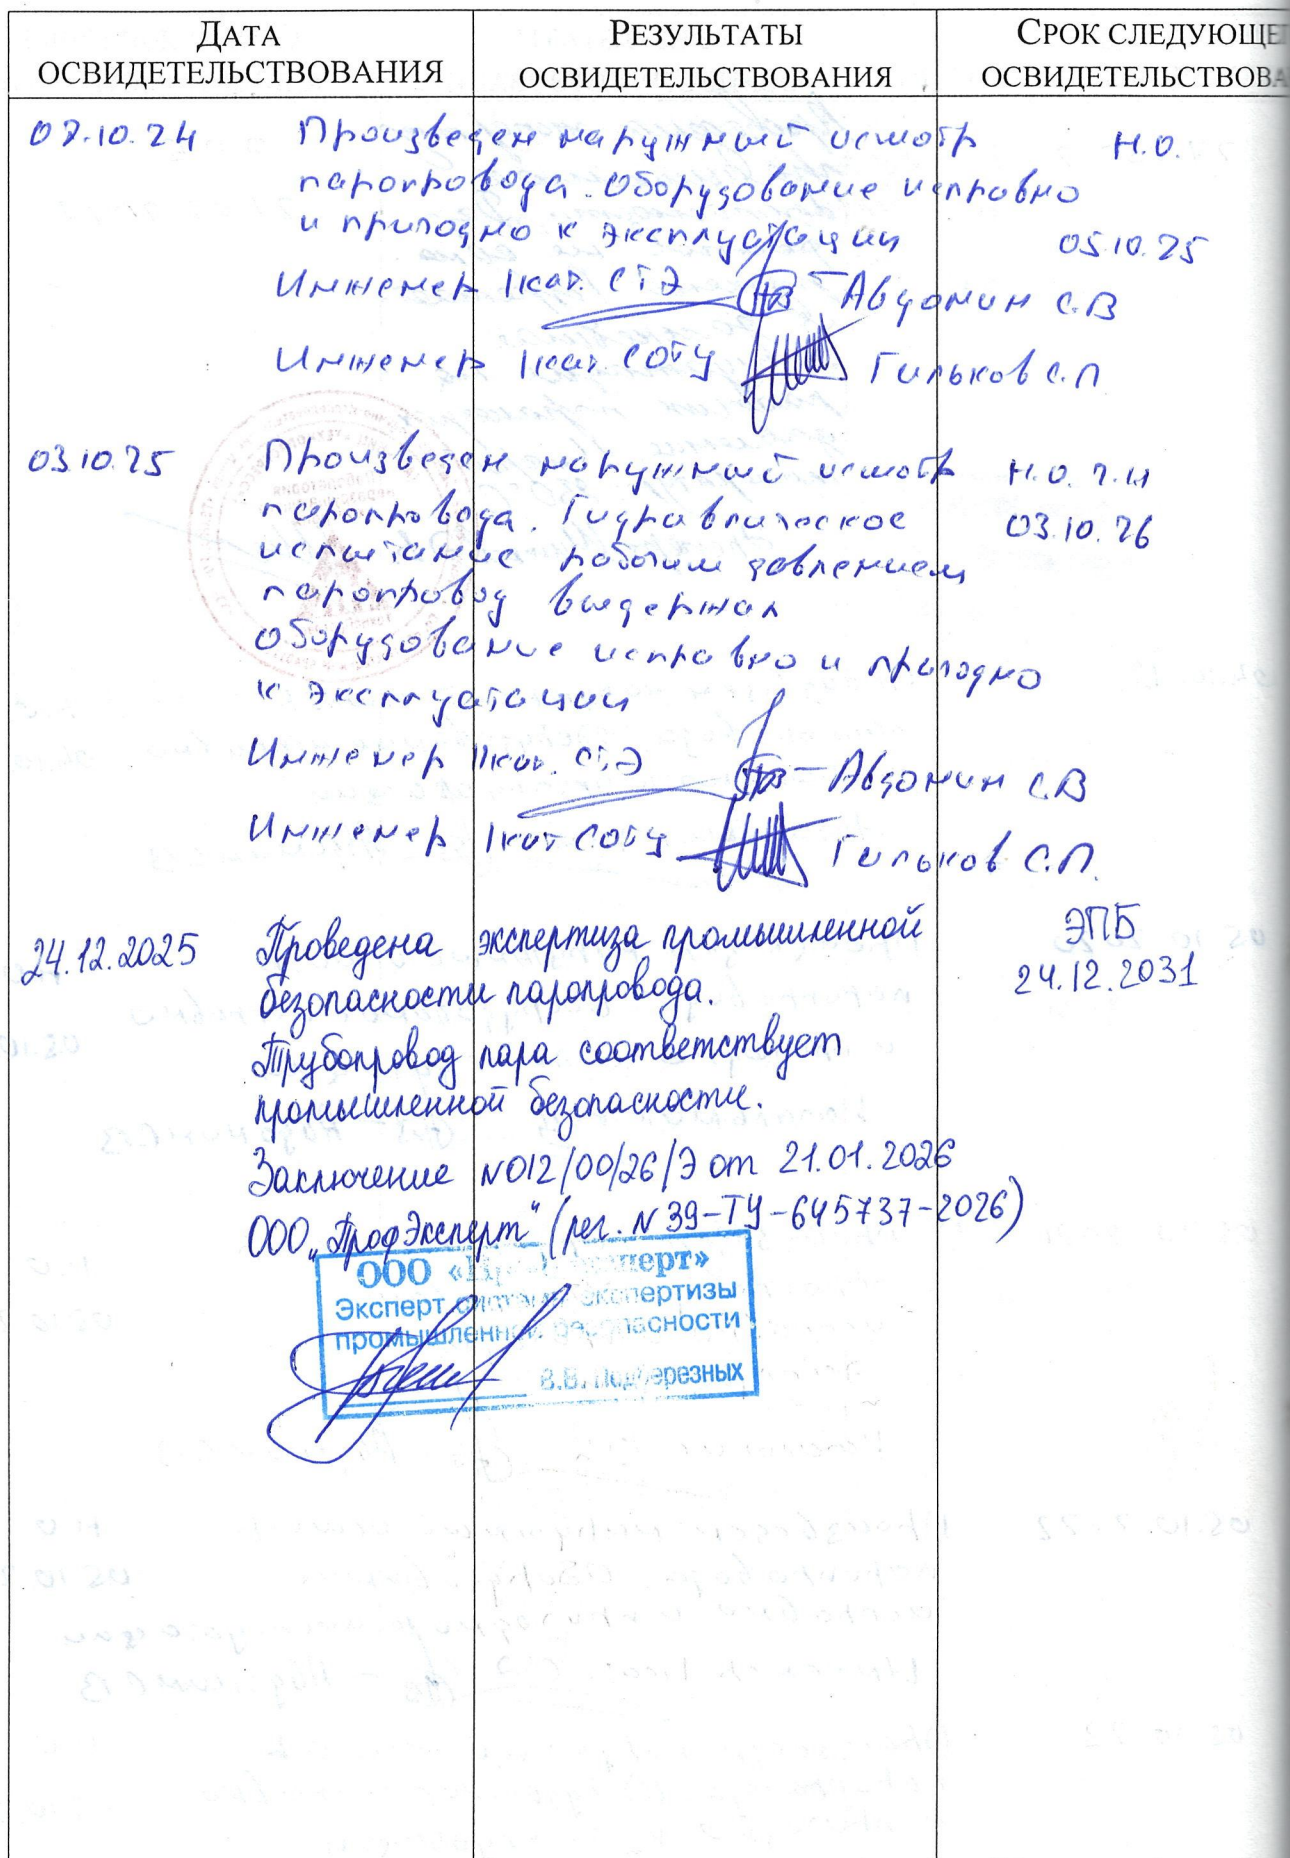 ДАТА ОСВИДЕТЕЛЬСТВОВАНИЯ
РЕЗУЛЬТАТЫ ОСВИДЕТЕЛЬСТВОВАНИЯ
СРОК СЛЕДУЮЩЕГ
ОСВИДЕТЕЛЬСТВОВА
07.10.24 Произведен наружный осмотр Н.О.
паропровода. Оборудование исправно
и пригодно к эксплуатации 05.10.25
Инженер Iкат. СТЭ Авдонин С.В
Инженер Iкат. СОТУ Гильков С.П.
03.10.25 Произведен наружный осмотр Н.О. Г.И
паропровода. Гидравлическое 03.10.26
испытание рабочим давлением
паропровод выдержал
оборудование исправно и пригодно
к эксплуатации
Инженер Iкат. СТЭ Авдонин С.В
Инженер Iкат СОТУ Гильков С.П.
24.12.2025 Проведена экспертиза промышленной ЭПБ
безопасности паропровода. 24.12.2031
Трубопровод пара соответствует
промышленной безопасности.
Заключение №012/00/26/Э от 21.01.2026
ООО „ПрофЭксперт" (рег. №39-ТУ-645737-2026)
ООО «ПрофЭксперт»
Эксперт системы экспертизы
промышленной безопасности
В.В. Подберезных